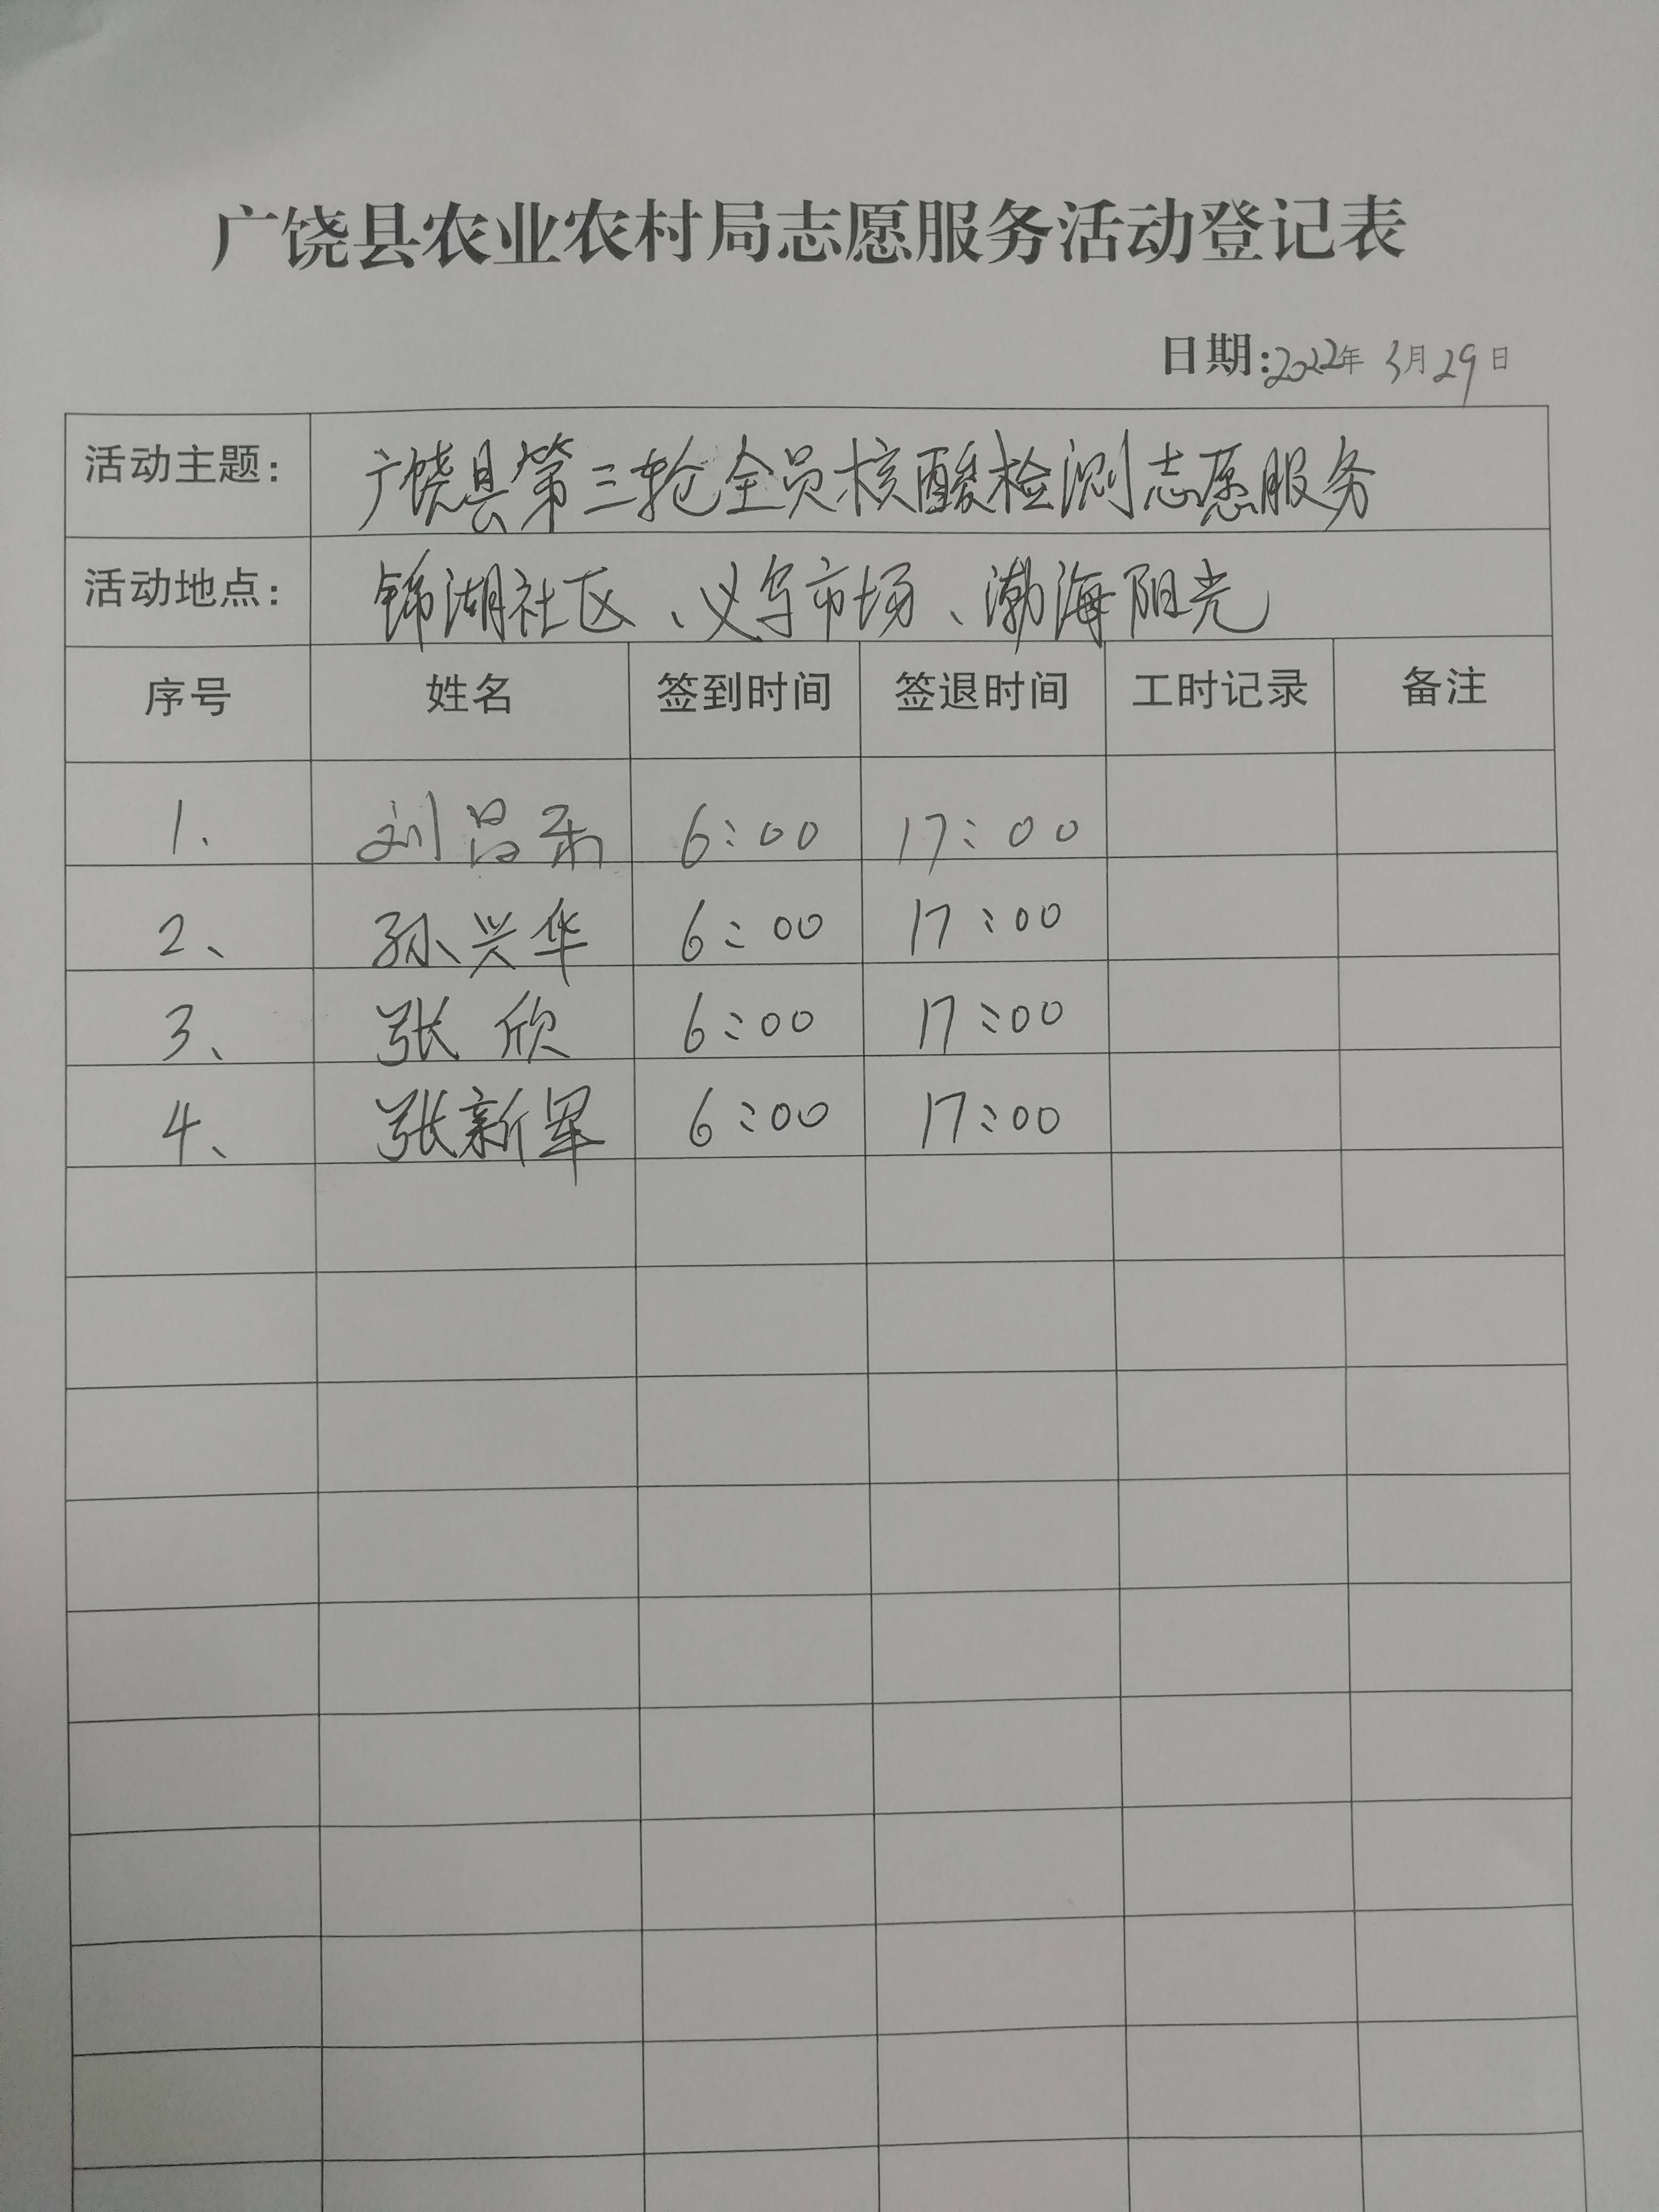 广饶县农业农村局志愿服务活动登记表
日期:2022年 3月29日
活动主题: 广饶县第三轮全员核酸检测志愿服务
活动地点: 锦湖社区、义乌市场、渤海阳光
序号 姓名 签到时间 签退时间 工时记录 备注
1、 刘昌 6:00 17:00
2、 孙兴华 6:00 17:00
3、 张欣 6:00 17:00
4、 张新军 6:00 17:00